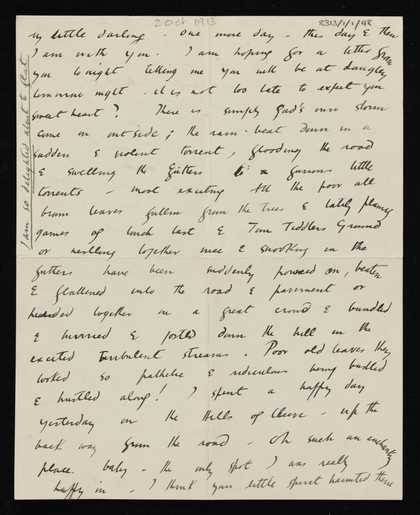 2 Oct 1913
8313/1/1/48
my little darling. One more day - this day & then
I am with you. I am hoping for a letter from
you tonight telling me you will be at
tomorrow night - it is not too late to expect you
sweet heart? There is simply God's own storm
come on outside; the rain - beat down in a
sudden & violent torrent, flooding the road
& swelling the gutters & furious little
torrents - most exciting All the poor old
brown leaves fallen from the trees & lately playing
games of touch last & Tom Tiddlers Ground
or nestling together nice & snoozling in the
gutters have been suddenly on, beaten
& flattened into the road & pavement or
together in a great crowd & bundled
& hurried & jostled down the hill in the
excited turbulent streams. Poor old leaves they
looked so pathetic & ridiculous being bustled
& hustled along! I spent a happy day
yesterday on the Hills of Cleeve - up the
back way from the road - Oh such an enchanting
place. baby - the only spot I was really
happy in - I think your little spirit haunted there
I am so delighted about the flat